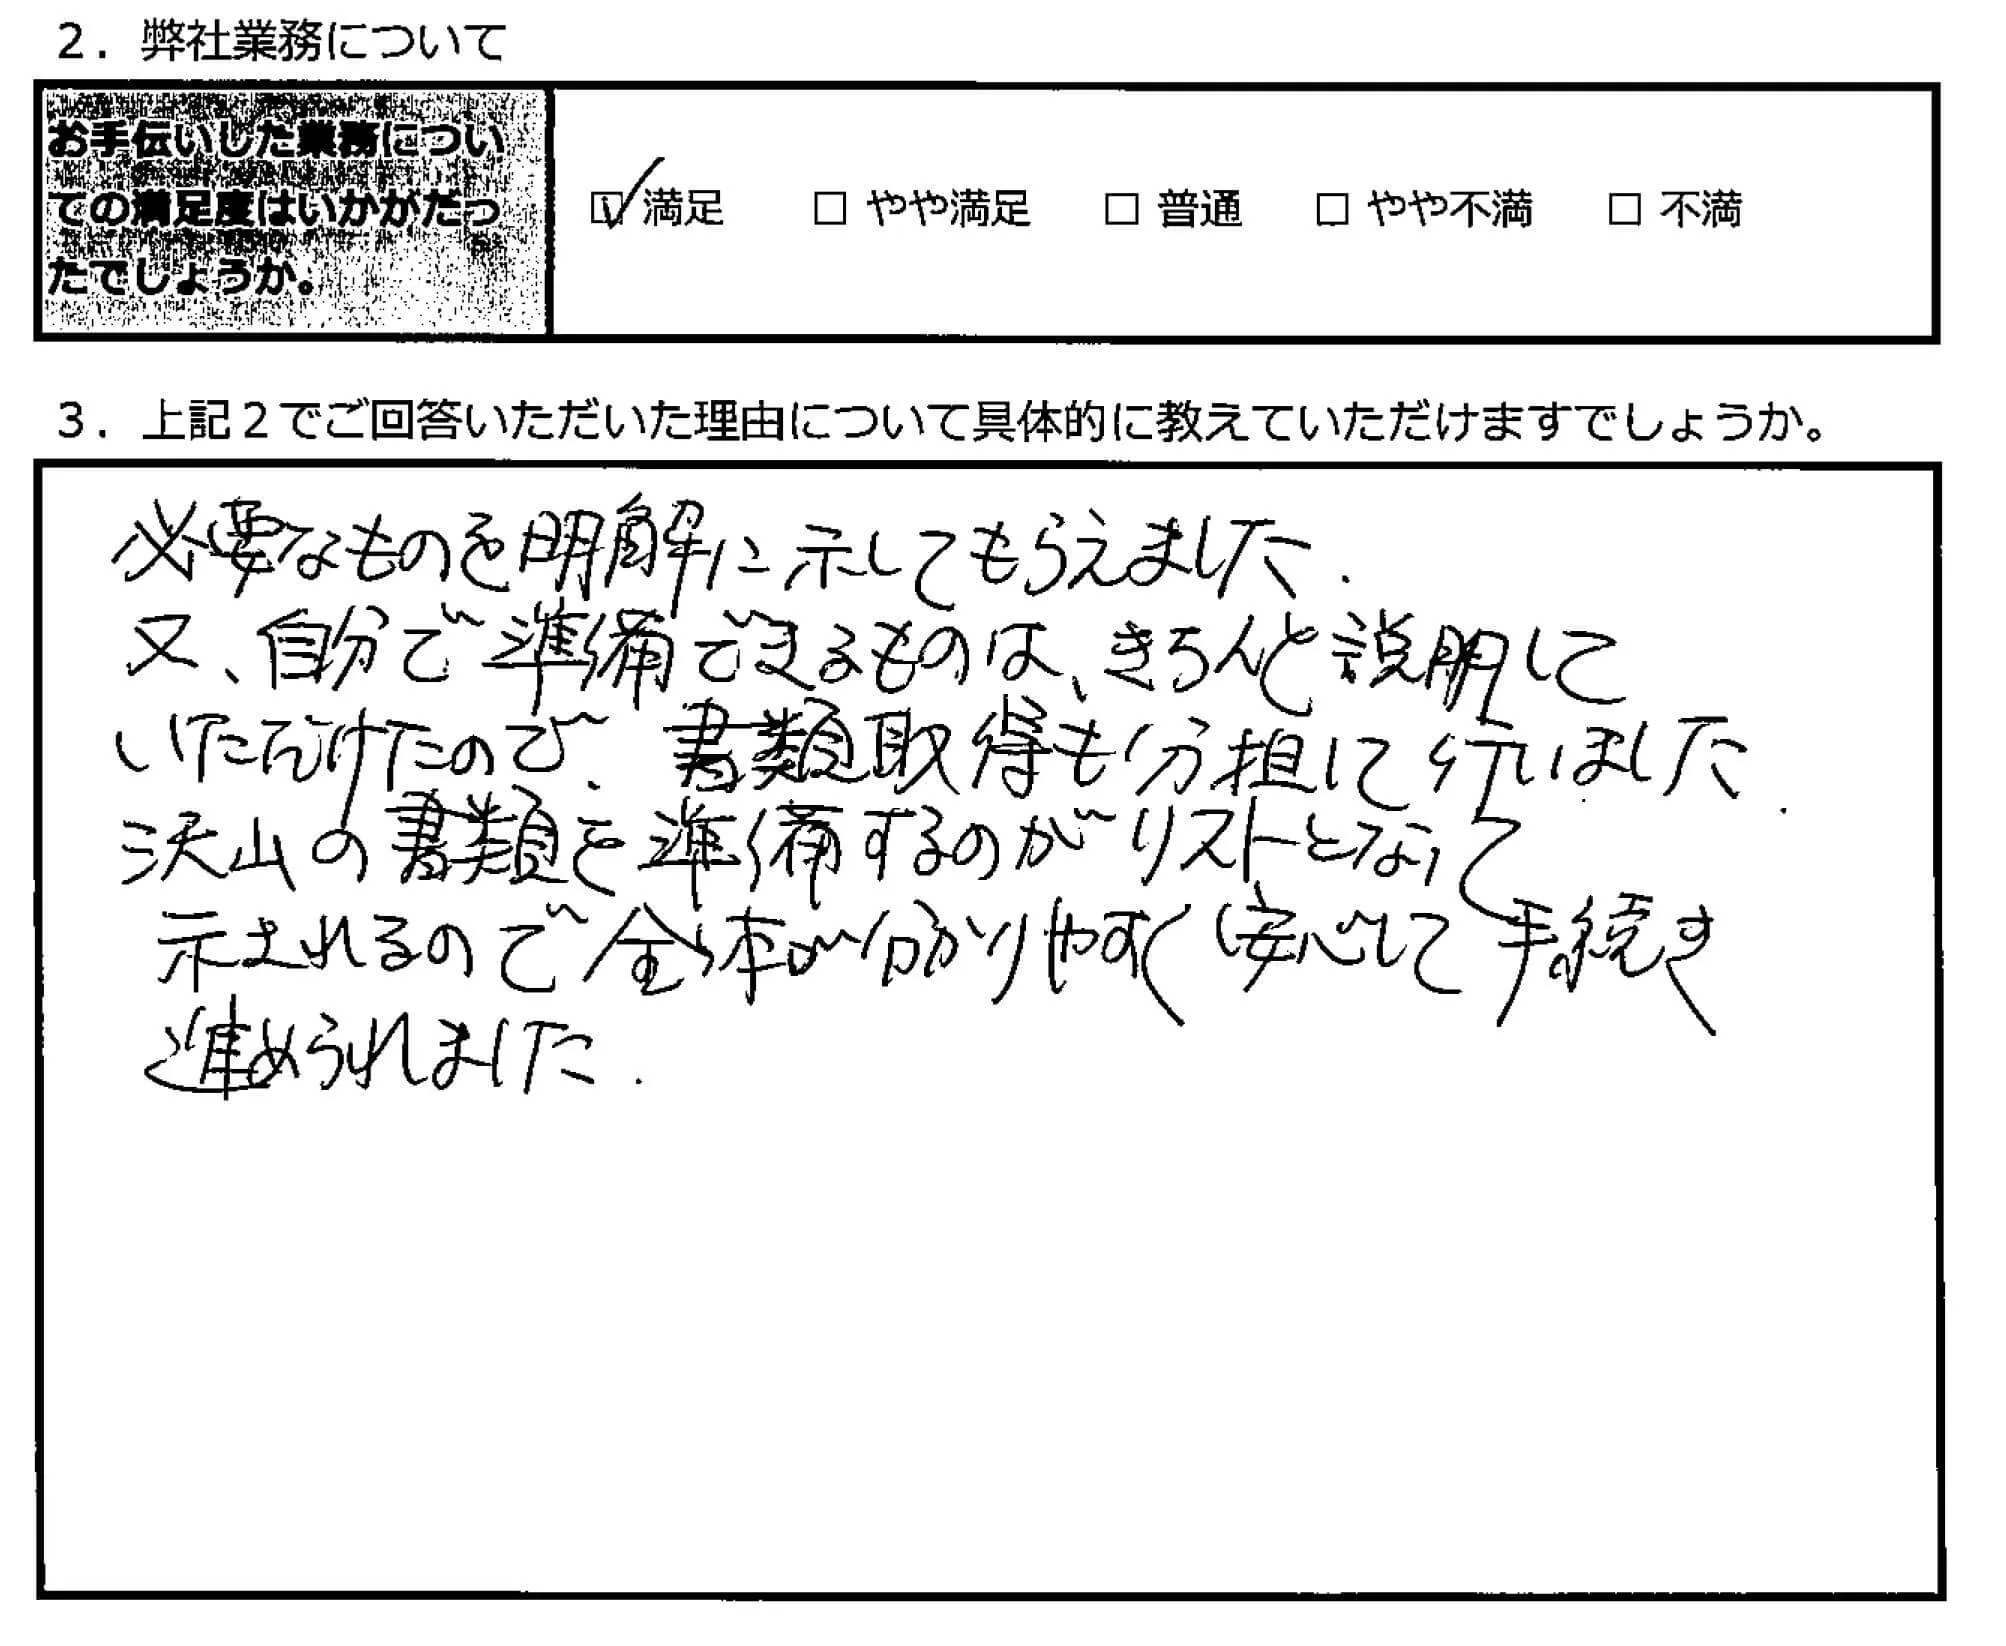 2. 弊社業務について
お手伝いした業務につい
ての満足度はいかがだっ
たでしょうか。
☑ 満足 □ やや満足 □ 普通 □ やや不満 □ 不満
3. 上記2でご回答いただいた理由について具体的に教えていただけますでしょうか。
必要なものを明解に示してもらえました.
又、自分で準備できるものは、きちんと説明して
いただけたので、書類取得も分担して行いました.
沢山の書類を準備するのがリストとなって
示されるので全体が分かりやすく安心して手続き
進められました.